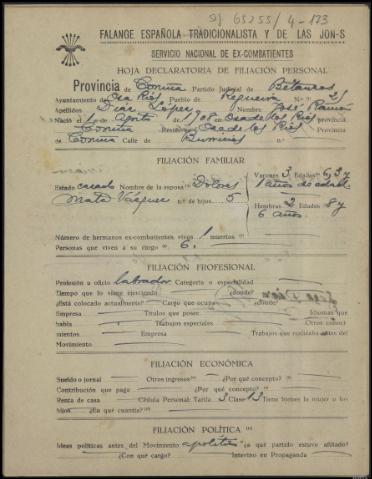 65255/4-123
FALANGE ESPAÑOLA TRADICIONALISTA Y DE LAS JON-S
SERVICIO NACIONAL DE EX-COMBATIENTES
HOJA DECLARATORIA DE FILIACIÓN PERSONAL
Provincia de Coruña Partido Judicial de Betanzos
Ayuntamiento de Oza Rios Pueblo de Regueira N.º
Apellidos Diaz López Nombre José Ramón
Nació el 1 de Agosto 1908 en Oza de los Rios Provincia
Coruña Residencia Oza de los Rios Provincia
de Coruña Calle de
FILIACIÓN FAMILIAR
Varones 3 Edades 6, 3 y
Estado casado Nombre de la esposa Dolores 1 años de edad
Mata Vázquez n.º de hijos 5
Hembras 2 Edades 8 y
6 años.
Número de hermanos ex-combatientes vivos 1 muertos
Personas que viven a su cargo 6.
FILIACIÓN PROFESIONAL
Profesión u oficio labrador Categoría o especialidad
Tiempo que lo viene ejerciendo ¿donde?
¿Está colocado actualmente? Cargo que ocupa ¿donde?
Empresa Títulos que posee Idiomas que
habla Trabajos especiales Otros
mientos Empresa Trabajos que realizaba antes del
Movimiento
FILIACIÓN ECONÓMICA
Sueldo o jornal Otros ingresos ¿Por qué concepto?
Contribución que paga ¿Por qué concepto?
Renta de casa Cédula Personal: Tarifa 3 Clase 13 Tiene bienes la mujer o los
hijos ¿En qué cuantía?
FILIACIÓN POLÍTICA
Ideas políticas antes del Movimiento apolítico ¿a qué partido estuvo afiliado?
¿Con qué cargo? Intervino en Propaganda